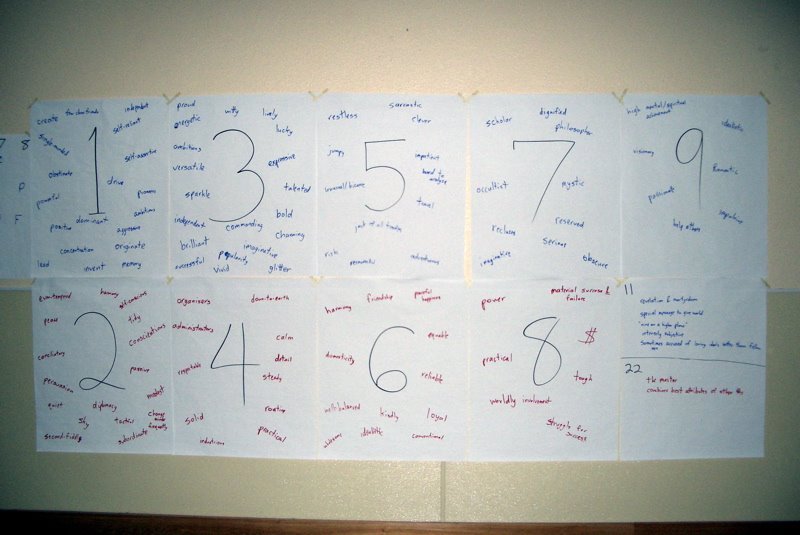 create
independent
self-reliant
single-minded
self-assertive
obstinate
drive
powerful
pioneers
1
dominant
ambitious
positive
aggressive
concentration
originate
lead
invent
memory
proud
witty
lively
energetic
lucky
ambitious
expressive
versatile
3
sparkle
talented
bold
independent
commanding
charming
brilliant
imaginative
popularity
successful
vivid
glitter
sarcastic
restless
clever
jumpy
impatient
hard to analyse
5
travel
jack of all trades
risks
resourceful
adventurous
dignified
scholar
philosopher
7
occultist
mystic
reserved
recluse
serious
imaginative
obscure
high mental/spiritual
achievement
idealistic
visionary
9
Romantic
passionate
help others
7 8
P
F
even-tempered
harmony
self-conscious
peace
tidy
conscientious
2
conciliatory
passive
persuasion
modest
quiet
diplomacy
change
minds
frequently
shy
tactful
second-fiddle
subordinate
organisers
down-to-earth
administrators
calm
4
respectable
detail
steady
routine
solid
practical
industrious
friendship
peaceful
happiness
harmony
equable
domesticity
6
reliable
well-balanced
kindly
loyal
wholesome
idealistic
conventional
power
material success &
failure
8
$
practical
tough
worldly involvement
struggle for
success
11
revelation & martyrdom
special message to give world
"live on a higher plane"
intensely subjective
sometimes accused of loving ideals rather than fellow
men
22
the master
combines best attributes of other #s